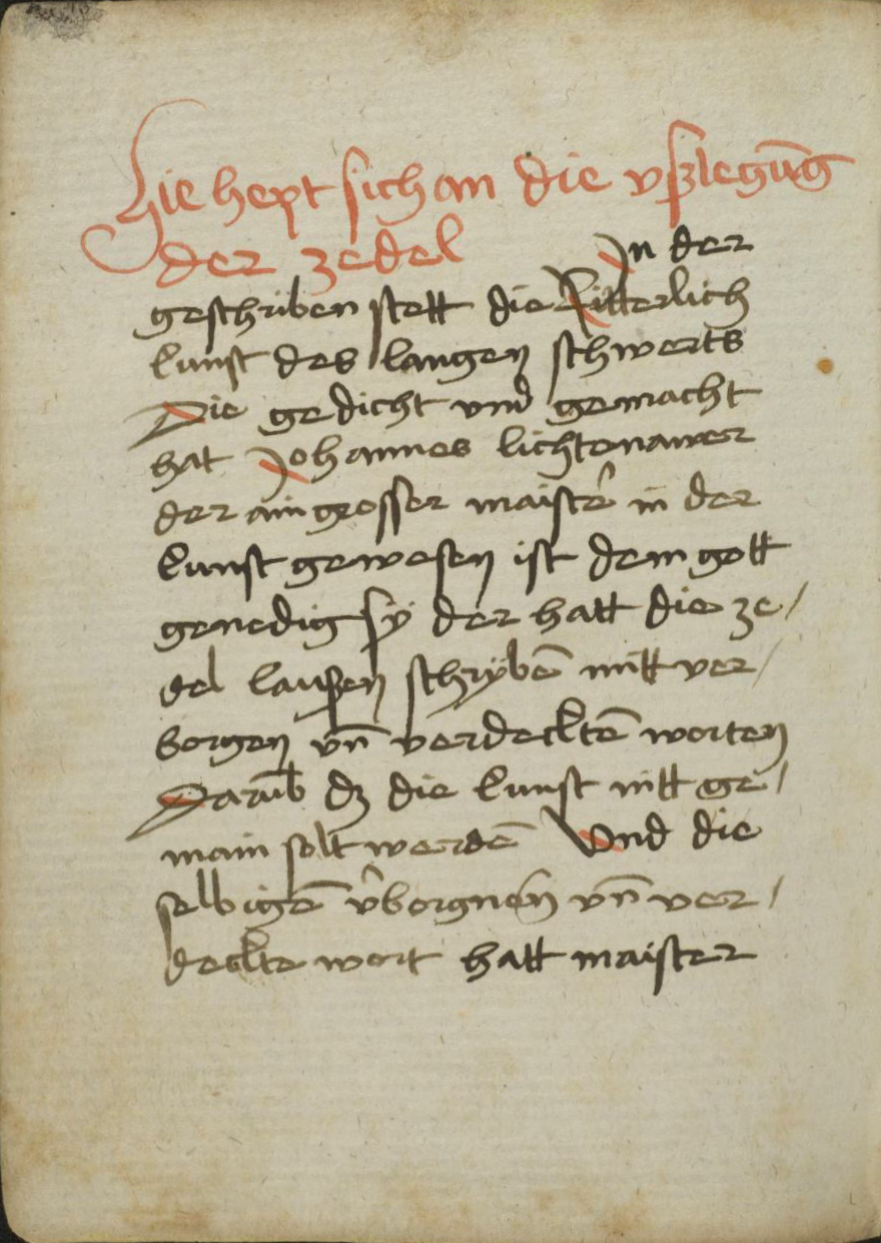 Hie hept sich an die vßlegūg
der zedel In der
geschriben stett die Ritterlich
kunst des langen schwerts
Die gedicht vnd gemacht
hat Johannes lichtenawer
der ain grosser maistē in der
kunst gewesen ist dem gott
genedig sÿ der hatt die ze/
del laußen schrÿbē mitt ver/
borgen vn̄ verdecktē worten
Darūb dz die kunst nitt ge/
main solt werdē Vnd die
selbigē v̄borgnen vn̄ ver/
deckte wort hatt maister